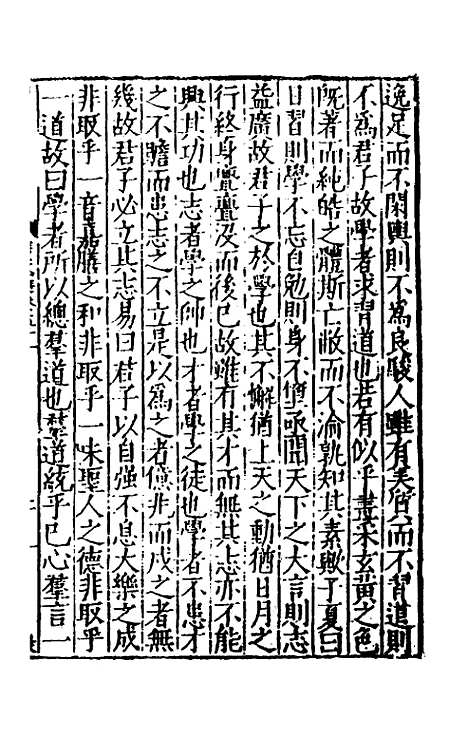 逸足而不閑輿則不爲良駿人雖有美質而不習道則
不爲君子故學者求習道也若有似乎畫采玄黃之色
旣著而純皓之體斯亡敝而不渝孰知其素歟子夏曰
日習則學不忘自勉則身不墮亟聞天下之大言則志
益廣故君子之於學也其不懈猶上天之動猶日月之
行終身亹亹沒而後已故雖有其才而無其志亦不能
興其功也志者學之帥也才者學之徒也學者不患才
之不贍而患志之不立是以爲之者億兆而成之者無
幾故君子必立其志易曰君子以自强不息大樂之成
非取乎一音嘉膳之和非取乎一味聖人之德非取乎
一道故曰學者所以總羣道也羣道統乎己心羣言一